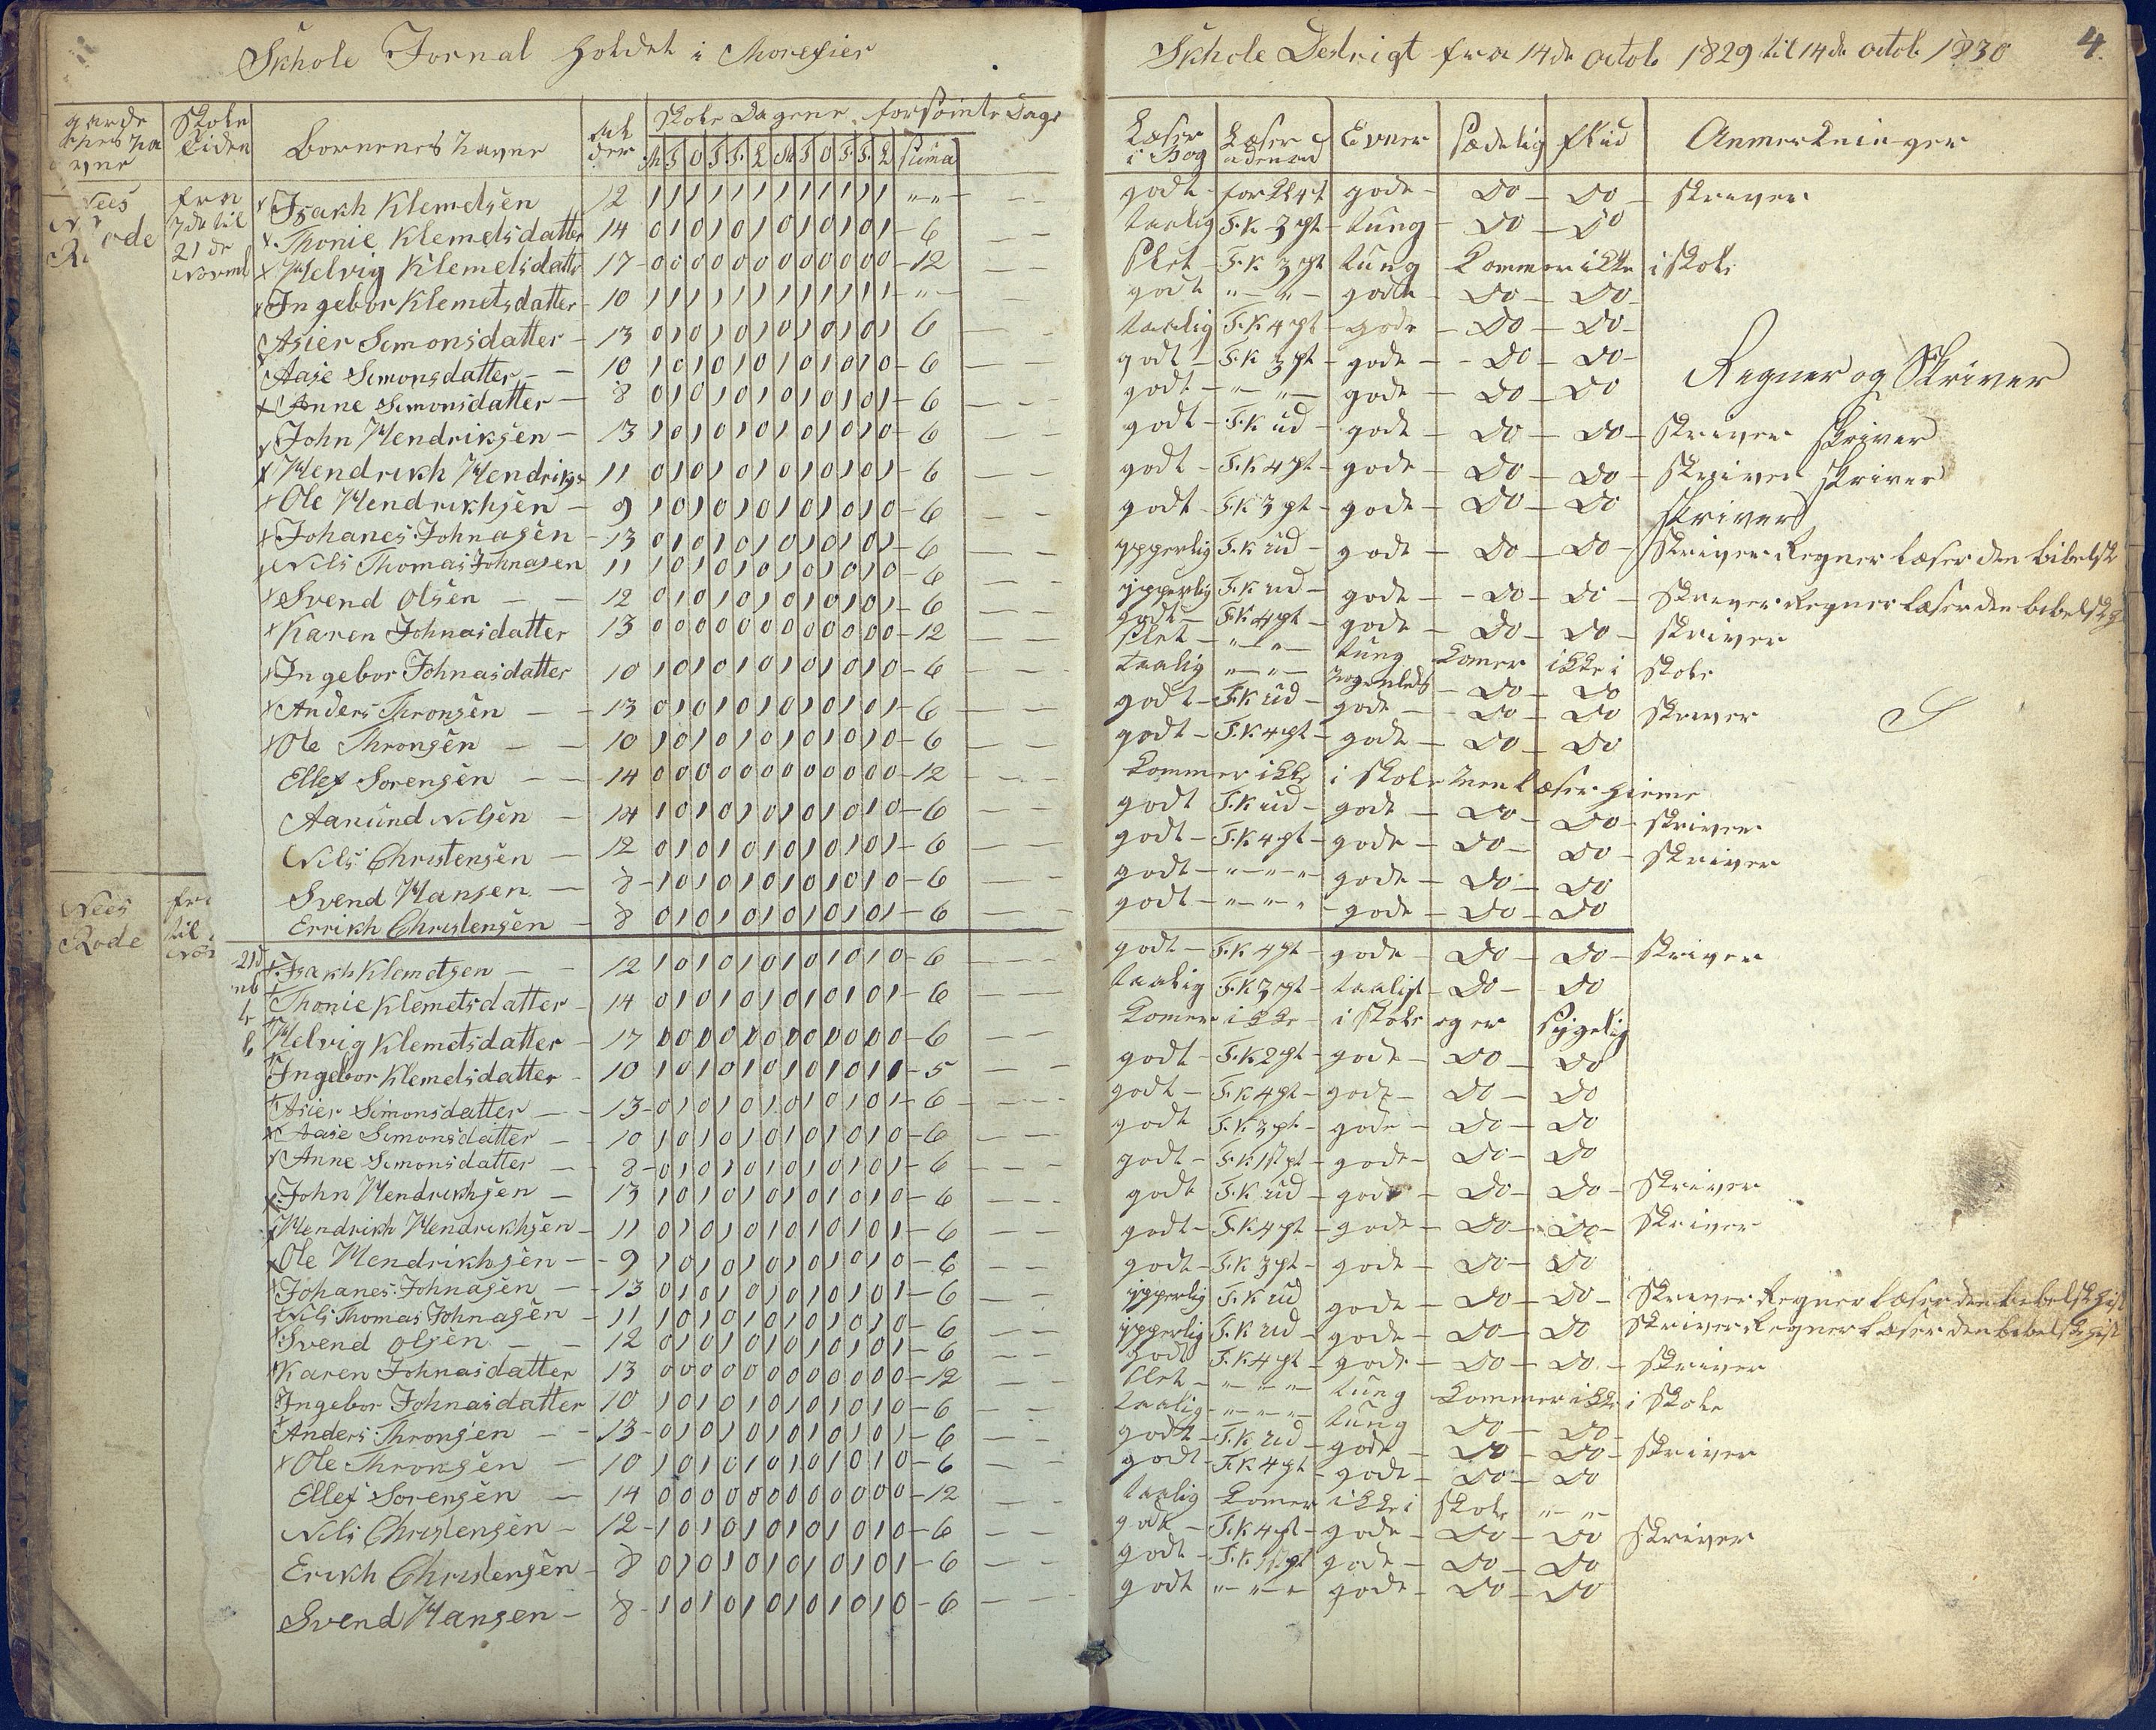 Skhole Jornal holdet i Morefier Skhole Destrigt fra 14de octob 1829 til 14de octob 1830 4.
Børnenes navne Al der Skole Dagene forsømte Dage
M T O T F L M T O T F L suma
Læser i Bog Læser udenad Evner Sædelig flid Anmerkninger
Nees Rode fra 7de til 21de Novmb
Isakh Klemetsen 12 1 1 1 1 1 1 1 1 1 1 1 1 „ „ godt for 2t 4 pt gode Do Do skriver
Thonie Klemetsdatter 14 0 1 0 1 0 1 0 1 0 1 0 1 6 taalig F.K 3 pt tung Do Do
Helvig Klemetsdatter 17 0 0 0 0 0 0 0 0 0 0 0 0 12 slet F.K 3 pt tung kommer ikke i skole
Ingebor Klemetsdatter 10 1 1 1 1 1 1 1 1 1 1 1 1 „ godt „ „ gode Do Do
Asier Simonsdatter 13 0 1 0 1 0 1 0 1 0 1 0 1 6 taalig F.K 4 pt gode Do Do
Aase Simonsdatter 10 1 0 1 0 1 0 1 0 1 0 1 0 6 godt F.K 3 pt gode Do Do Regner og Skriver
Anne Simonsdatter 8 0 1 0 1 0 1 0 1 0 1 0 1 6 godt „ „ gode Do Do
John Hendriksen 13 1 0 1 0 1 0 1 0 1 0 1 0 6 godt F.K ud gode Do Do skriver skriver
Hendrikh Hendriks 11 0 1 0 1 0 1 0 1 0 1 0 1 6 godt F.K 4 pt gode Do Do skriver skriver
Ole Hendrikhsen 9 1 0 1 0 1 0 1 0 1 0 1 0 6 godt F.K 3 pt gode Do Do skriver
Johanes Johnasen 13 0 1 0 1 0 1 0 1 0 1 0 1 6 ypperlig F.K ud gode Do Do skriver Regner læser den bibelsk
Nils Thomas Johnasen 11 1 0 1 0 1 0 1 0 1 0 1 0 6 ypperlig F.K ud gode Do Do skriver Regner læser den bibelsk h
Svend Olsen 12 0 1 0 1 0 1 0 1 0 1 0 1 6 godt F.K 4 pt gode Do Do skriver
Karen Johnasdatter 13 0 0 0 0 0 0 0 0 0 0 0 0 12 slet „ „ tung komer ikke i skole
Ingebor Johnasdatter 10 1 0 1 0 1 0 1 0 1 0 1 0 6 taalig „ „ nogenleds Do Do
Anders Thronsen 13 0 1 0 1 0 1 0 1 0 1 0 1 6 godt F.K ud gode Do Do skriver
Ole Thronsen 10 1 0 1 0 1 0 1 0 1 0 1 0 6 godt F.K 4 pt gode Do Do
Ellef Sorensen 14 0 0 0 0 0 0 0 0 0 0 0 0 12 kommer ikke i skole men læser hieme
Aanund Nilsen 14 1 0 1 0 1 0 1 0 1 0 1 0 6 godt F.K ud gode Do Do skriver
Nils Christensen 12 0 1 0 1 0 1 0 1 0 1 0 1 6 godt F.K 4 pt gode Do Do skriver
Svend Hansen 8 1 0 1 0 1 0 1 0 1 0 1 0 6 godt „ „ „ gode Do Do
Errikh Christensen 8 0 1 0 1 0 1 0 1 0 1 0 1 6 godt „ „ „ gode Do Do
Nees Rode fra til 21d
Isakh Klemetsen 12 1 0 1 0 1 0 1 0 1 0 1 0 6 godt F.K 4 pt gode Do Do skriver
Thonie Klemetsdatter 14 0 1 0 1 0 1 0 1 0 1 0 1 6 taalig F.K 3 pt taaligt Do Do
Helvig Klemetsdatter 17 0 0 0 0 0 0 0 0 0 0 0 0 6 komer ikke i skole og er sygelig
Ingebor Klemetsdatter 10 1 0 1 0 1 0 1 0 1 0 1 1 5 godt F.K 2 pt gode Do Do
Asier Simonsdatter 13 0 1 0 1 0 1 0 1 0 1 0 1 6 godt F.K 4 pt gode Do Do
Aase Simonsdatter 10 1 0 1 0 1 0 1 0 1 0 1 0 6 godt F.K 3 pt gode Do Do
Anne Simonsdatter 8 0 1 0 1 0 1 0 1 0 1 0 1 6 godt F.K 1st pt gode Do Do
John Hendrikhsen 13 1 0 1 0 1 0 1 0 1 0 1 0 6 godt F.K ud gode Do Do skriver
Hendrikh Hendrikhsen 11 0 1 0 1 0 1 0 1 0 1 0 1 6 godt F.K 4 pt gode Do Do skriver
Ole Hendrikhsen 9 1 0 1 0 1 0 1 0 1 0 1 0 6 godt F.K 3 pt gode Do Do
Johanes Johnasen 13 0 1 0 1 0 1 0 1 0 1 0 1 6 ypperlig F.K ud gode Do Do skriver Regner læser den bibelsk hist
Nils Thomas Johnasen 11 1 0 1 0 1 0 1 0 1 0 1 0 6 ypperlig F.K ud gode Do Do skriver Regner læser den bibelsk hist
Svend olsen 12 0 1 0 1 0 1 0 1 0 1 0 1 6 godt F.K 4 pt gode Do Do skriver
Karen Johnasdatter 13 0 0 0 0 0 0 0 0 0 0 0 0 12 slet „ „ „ tung kommer ikke i skole
Ingebor Johnasdatter 10 1 0 1 0 1 0 1 0 1 0 1 0 6 taalig „ „ „ tung Do Do
Anders Thronsen 13 0 1 0 1 0 1 0 1 0 1 0 1 6 godt F.K ud gode Do Do skriver
Ole Thronsen 10 1 0 1 0 1 0 1 0 1 0 1 0 6 godt F.K 4 pt gode Do Do
Ellef Sorensen 14 0 0 0 0 0 0 0 0 0 0 0 0 12 taalig komer ikke i skole „ „
Nils Christensen 12 1 0 1 0 1 0 1 0 1 0 1 0 6 godt F.K 4 pt gode Do Do skriver
Erikh Christensen 8 0 1 0 1 0 1 0 1 0 1 0 1 6 godt F.K 1st pt gode Do Do
Svend Hansen 8 1 0 1 0 1 0 1 0 1 0 1 0 6 godt „ „ „ gode Do Do